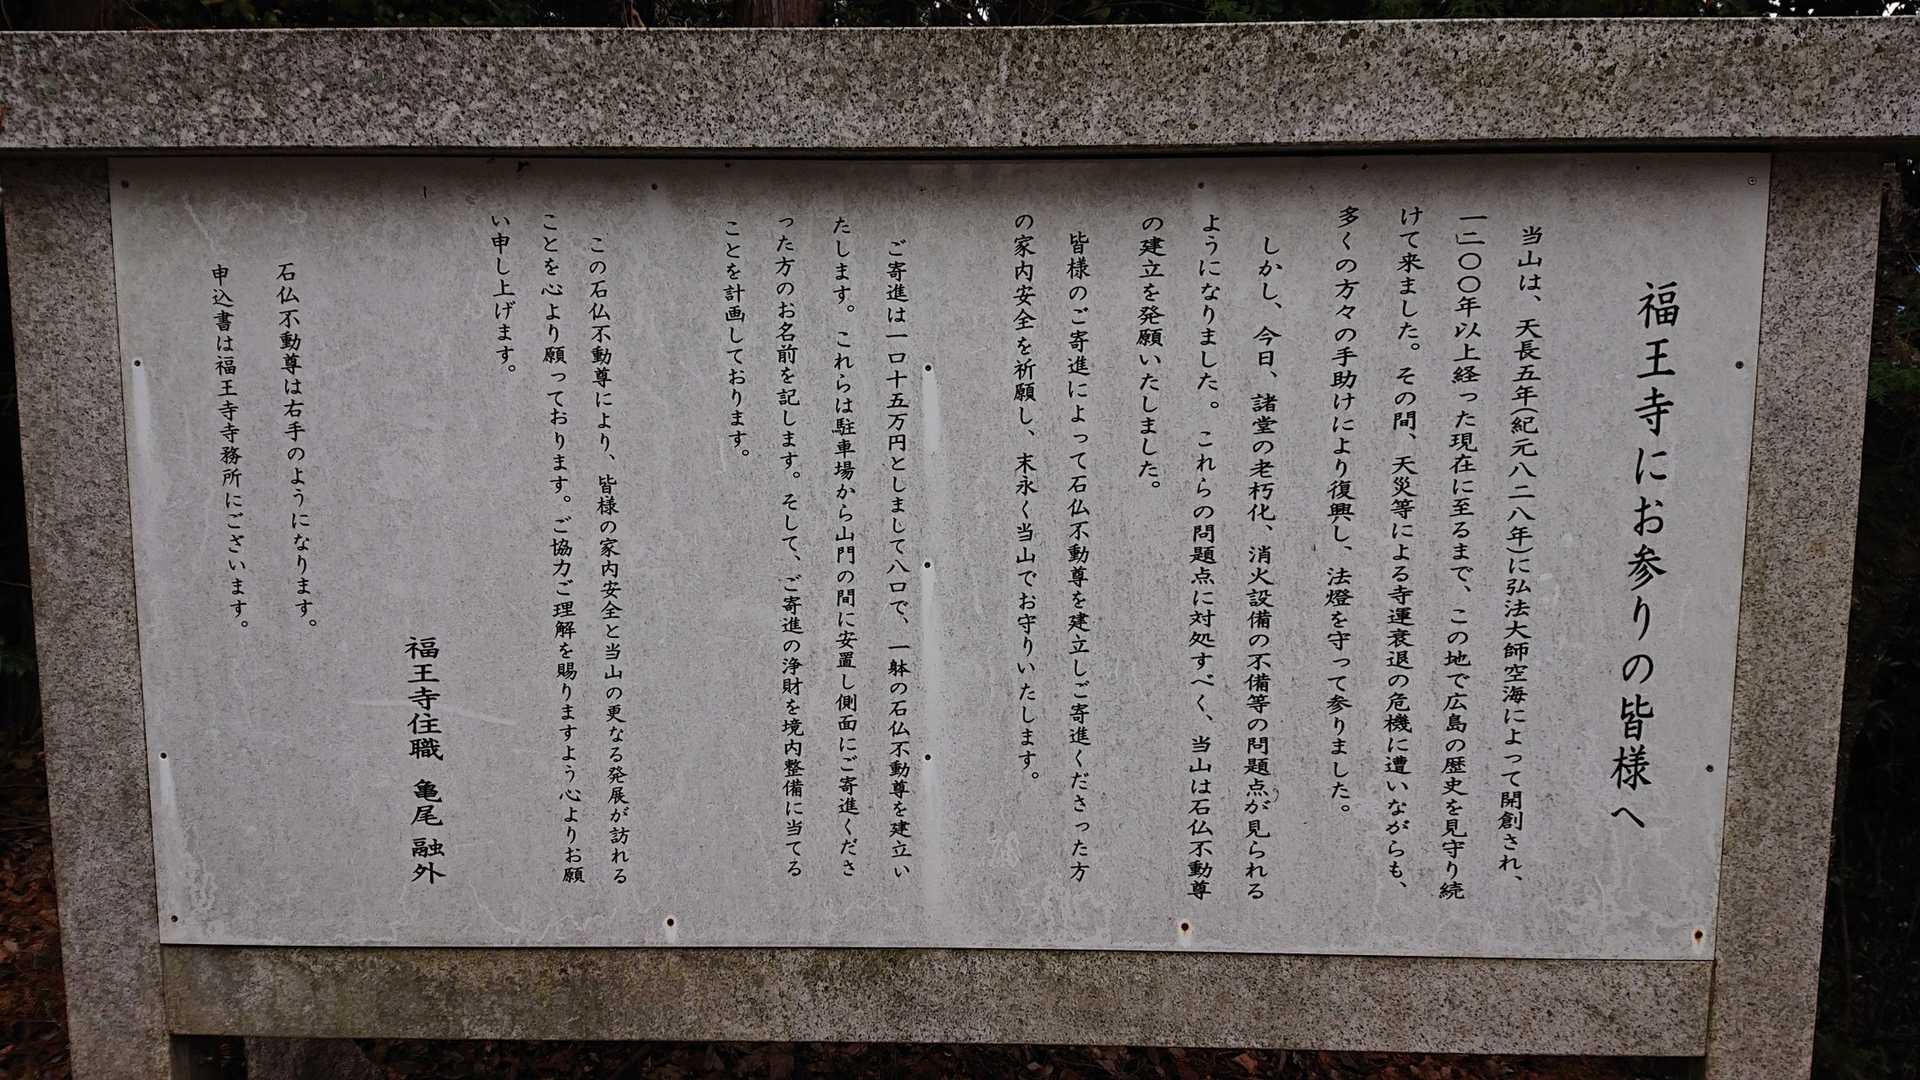 福王寺にお参りの皆様へ
当山は、天長五年(紀元八二八年)に弘法大師空海によって開創され、
一二〇〇年以上経った現在に至るまで、この地で広島の歴史を見守り続
けて来ました。その間、天災等による寺運衰退の危機に遭いながらも、
多くの方々の手助けにより復興し、法燈を守って参りました。
しかし、今日、諸堂の老朽化、消火設備の不備等の問題点が見られる
ようになりました。これらの問題点に対処すべく、当山は石仏不動尊
の建立を発願いたしました。
皆様のご寄進によって石仏不動尊を建立しご寄進くださった方
の家内安全を祈願し、末永く当山でお守りいたします。
ご寄進は一口十五万円としまして八口で、一躰の石仏不動尊を建立い
たします。これらは駐車場から山門の間に安置し側面にご寄進くださ
った方のお名前を記します。そして、ご寄進の浄財を境内整備に当てる
ことを計画しております。
この石仏不動尊により、皆様の家内安全と当山の更なる発展が訪れる
ことを心より願っております。ご協力ご理解を賜りますよう心よりお願
い申し上げます。
福王寺住職 亀尾 融外
石仏不動尊は右手のようになります。
申込書は福王寺寺務所にございます。